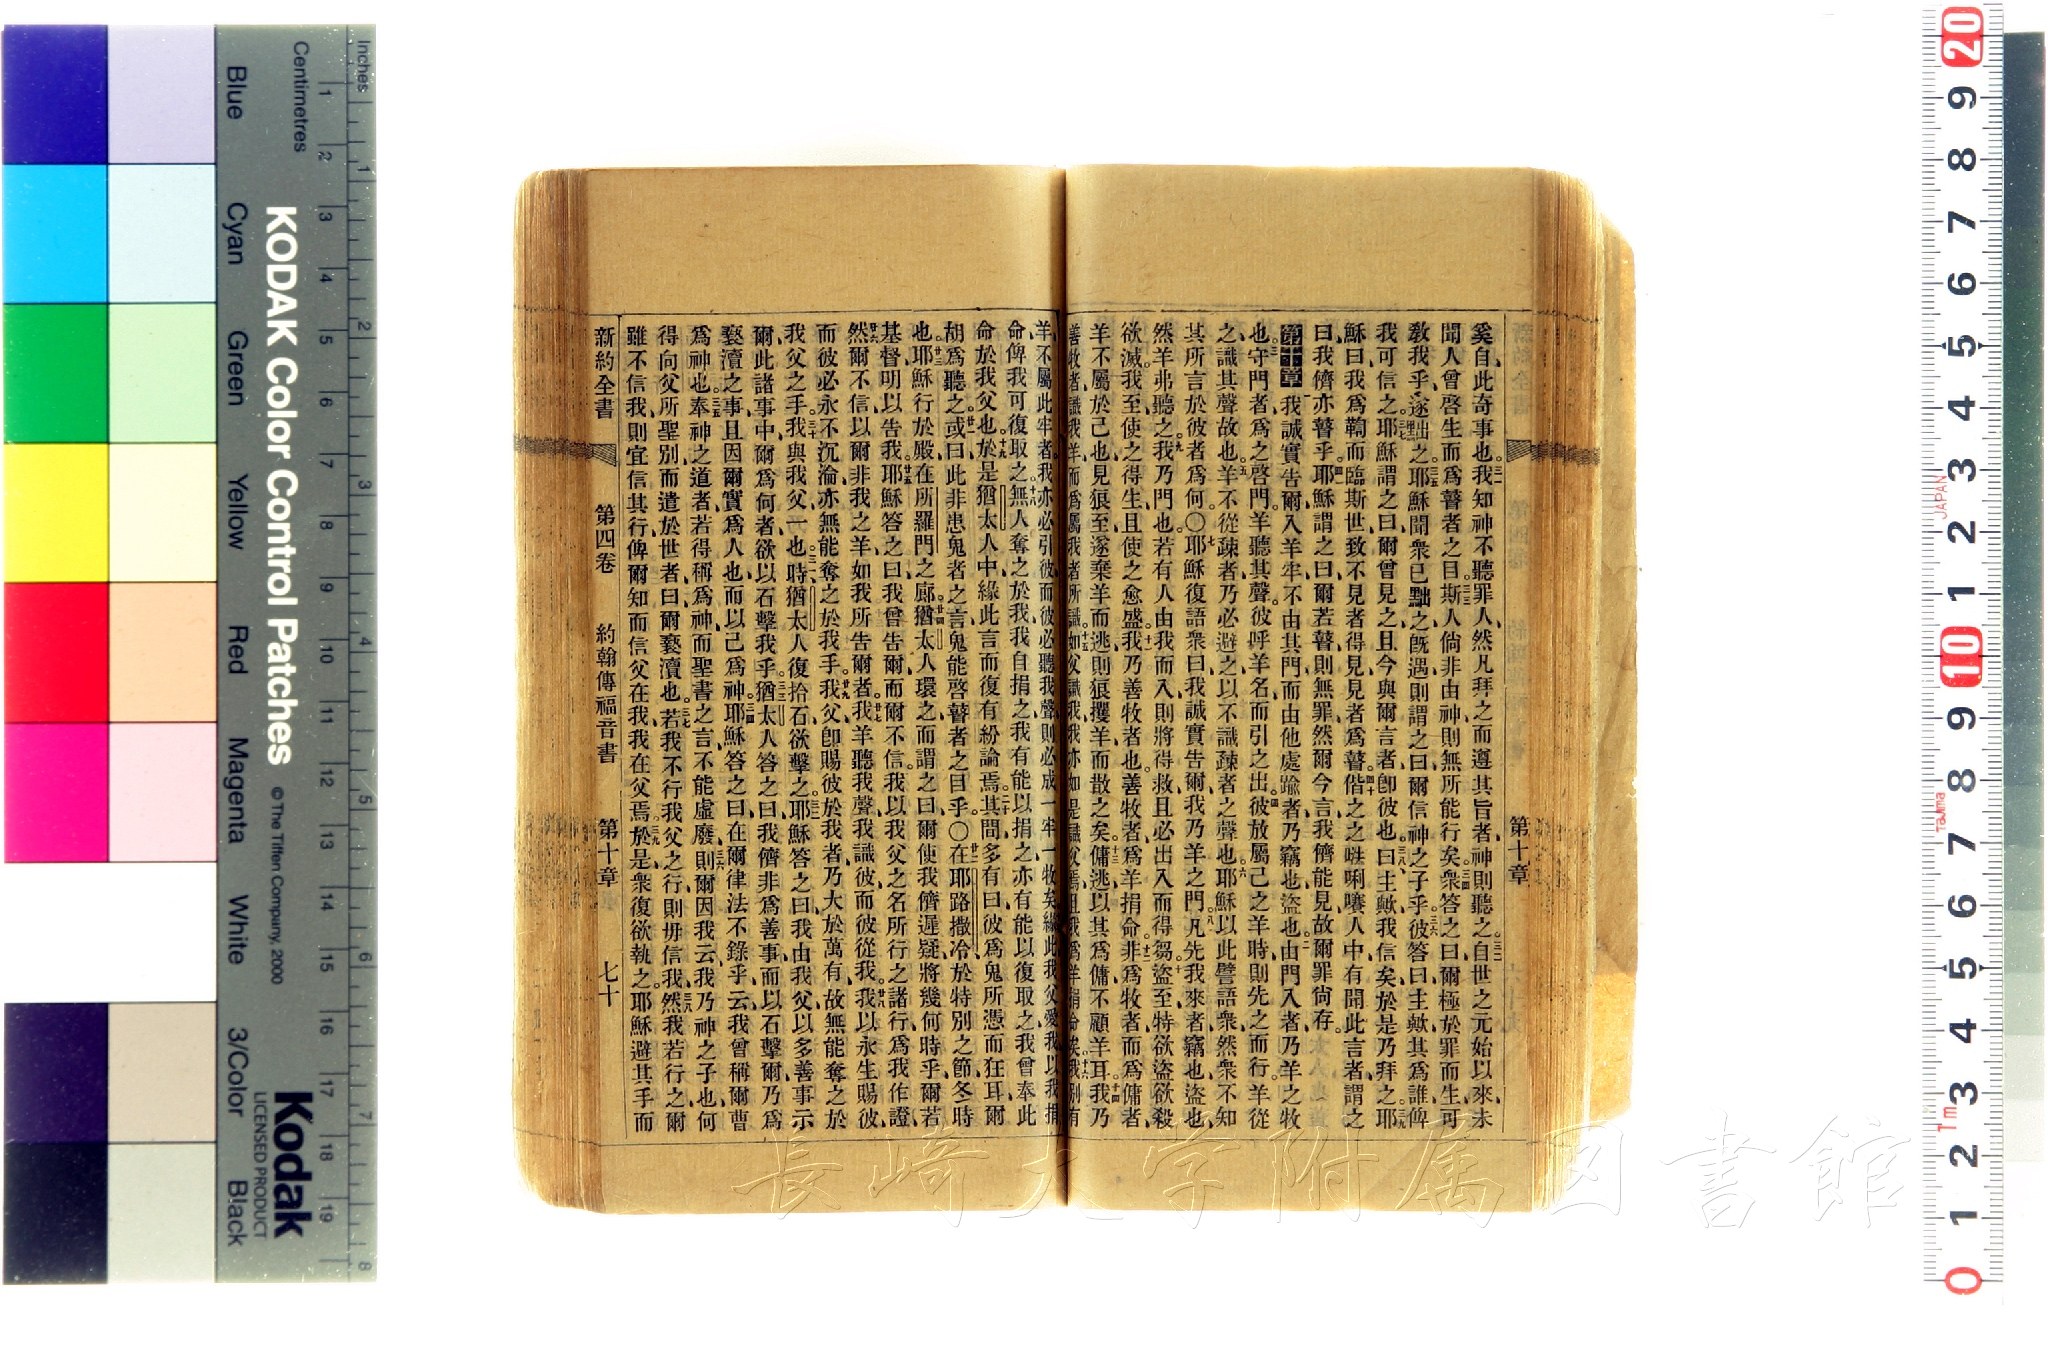 第十章
奚自此奇事也、我知神不聽罪人、然凡拜之而遵其旨者、神則聽之。自世之元始以來、未
聞人曾啓生而爲瞽者之目。斯人倘非由神、則無所能行矣。衆答之曰、爾極於罪而生、可
敎我乎。遂黜之。耶穌聞衆已黜之、旣遇則謂之曰、爾信神之子乎。彼答曰、主歟、其爲誰、俾
我可信之。耶穌謂之曰、爾曾見之、且今與爾言者卽彼也。曰、主歟、我信矣、於是乃拜之。耶
穌曰、我爲鞫而臨斯世、致不見者得見、見者爲瞽。偕之之唎人中、有聞此言者、謂之
曰、我儕亦瞽乎。耶穌謂之曰、爾若瞽、則無罪、然爾今言我儕能見、故爾罪尙存。
第十章 我誠實告爾、入羊牢、不由其門、而由他處踰者、乃竊也、盜也。由門入者、乃羊之牧
也。守門者爲之啓門、羊聽其聲、彼呼羊名而引之出。彼放屬己之羊時、則先之而行、羊從
之、識其聲故也。羊不從疎者、乃必避之、以不識疎者之聲也。耶穌以此譬語衆、然衆不知
其所言於彼者爲何。〇耶穌復語衆曰、我誠實告爾、我乃羊之門。凡先我來者、竊也、盜也、
然羊弗聽之。我乃門也、若有人由我而入、則將得救、且必出入而得芻。盜至、特欲盜、欲殺、
欲滅、我至、使之得生、且使之愈盛。我乃善牧者也、善牧者爲羊捐命。非爲牧者、而爲傭者、
羊不屬於己也、見狼至、遂棄羊而逃、則狼攫羊而散之矣。傭逃、以其爲傭、不顧羊耳。我乃
善牧者、識我羊、而爲屬我者所識、如父識我、我亦如是識父焉、且我爲羊捐命矣。我別有
羊、不屬此牢者、我亦必引彼、而彼必聽我聲、則必成一牢一牧矣。緣此我父愛我、以我捐
命、俾我可復取之。無人奪之於我、我自捐之、我有能以捐之、亦有能以復取之、我曾奉此
命於我父也。於是猶太人中、緣此言而復有紛論焉。其間多有曰、彼爲鬼所憑而狂耳、爾
胡爲聽之。或曰、此非患鬼者之言、鬼能啓瞽者之目乎。〇在耶路撒冷於特別之節、冬時
也。耶穌行於殿、在所羅門之廊。猶太人環之、而謂之曰、爾使我儕遲疑、將幾何時乎、爾若
基督、明以告我。耶穌答之曰、我曾告爾、而爾不信、我以我父之名所行之諸行、爲我作證、
然爾不信、以爾非我之羊、如我所告爾者。我羊聽我聲、我識彼、而彼從我。我以永生賜彼、
而彼必永不沉淪、亦無能奪之於我手。我父卽賜彼於我者、乃大於萬有、故無能奪之於
我父之手。我與我父一也。時猶太人復拾石欲擊之。耶穌答之曰、我由我父以多善事示
爾、此諸事中、爾爲何者欲以石擊我乎。猶太人答之曰、我儕非爲善事而以石擊爾、乃爲
褻瀆之事、且因爾實爲人也、而以己爲神。耶穌答之曰、在爾律法不錄乎、云、我曾稱爾曹
爲神也。奉神之道者、若得稱爲神、而聖書之言不能虛廢、則爾因我云、我乃神之子也、何
得向父所聖別而遣於世者曰、爾褻瀆也。若我不行我父之行、則毋信我。然我若行之、爾
雖不信我、則宜信其行、俾爾知而信父在我、我在父焉。於是衆復欲執之、耶穌避其手而
新約全書 第四卷 約翰傳福音書 第十章 七十
長崎大学附属図書館
Inches
Centimetres
KODAK Color Control Patches
© The Tiffen Company, 2000
Kodak
LICENSED PRODUCT
Blue Cyan Green Yellow Red Magenta White 3/Color Black
1 2 3 4 5 6 7 8 9 10 11 12 13 14 15 16 17 18 19
1 2 3 4 5 6 7 8
20 9 8 7 6 5 4 3 2 1 10 9 8 7 6 5 4 3 2 1 0
JAPAN
Tajima